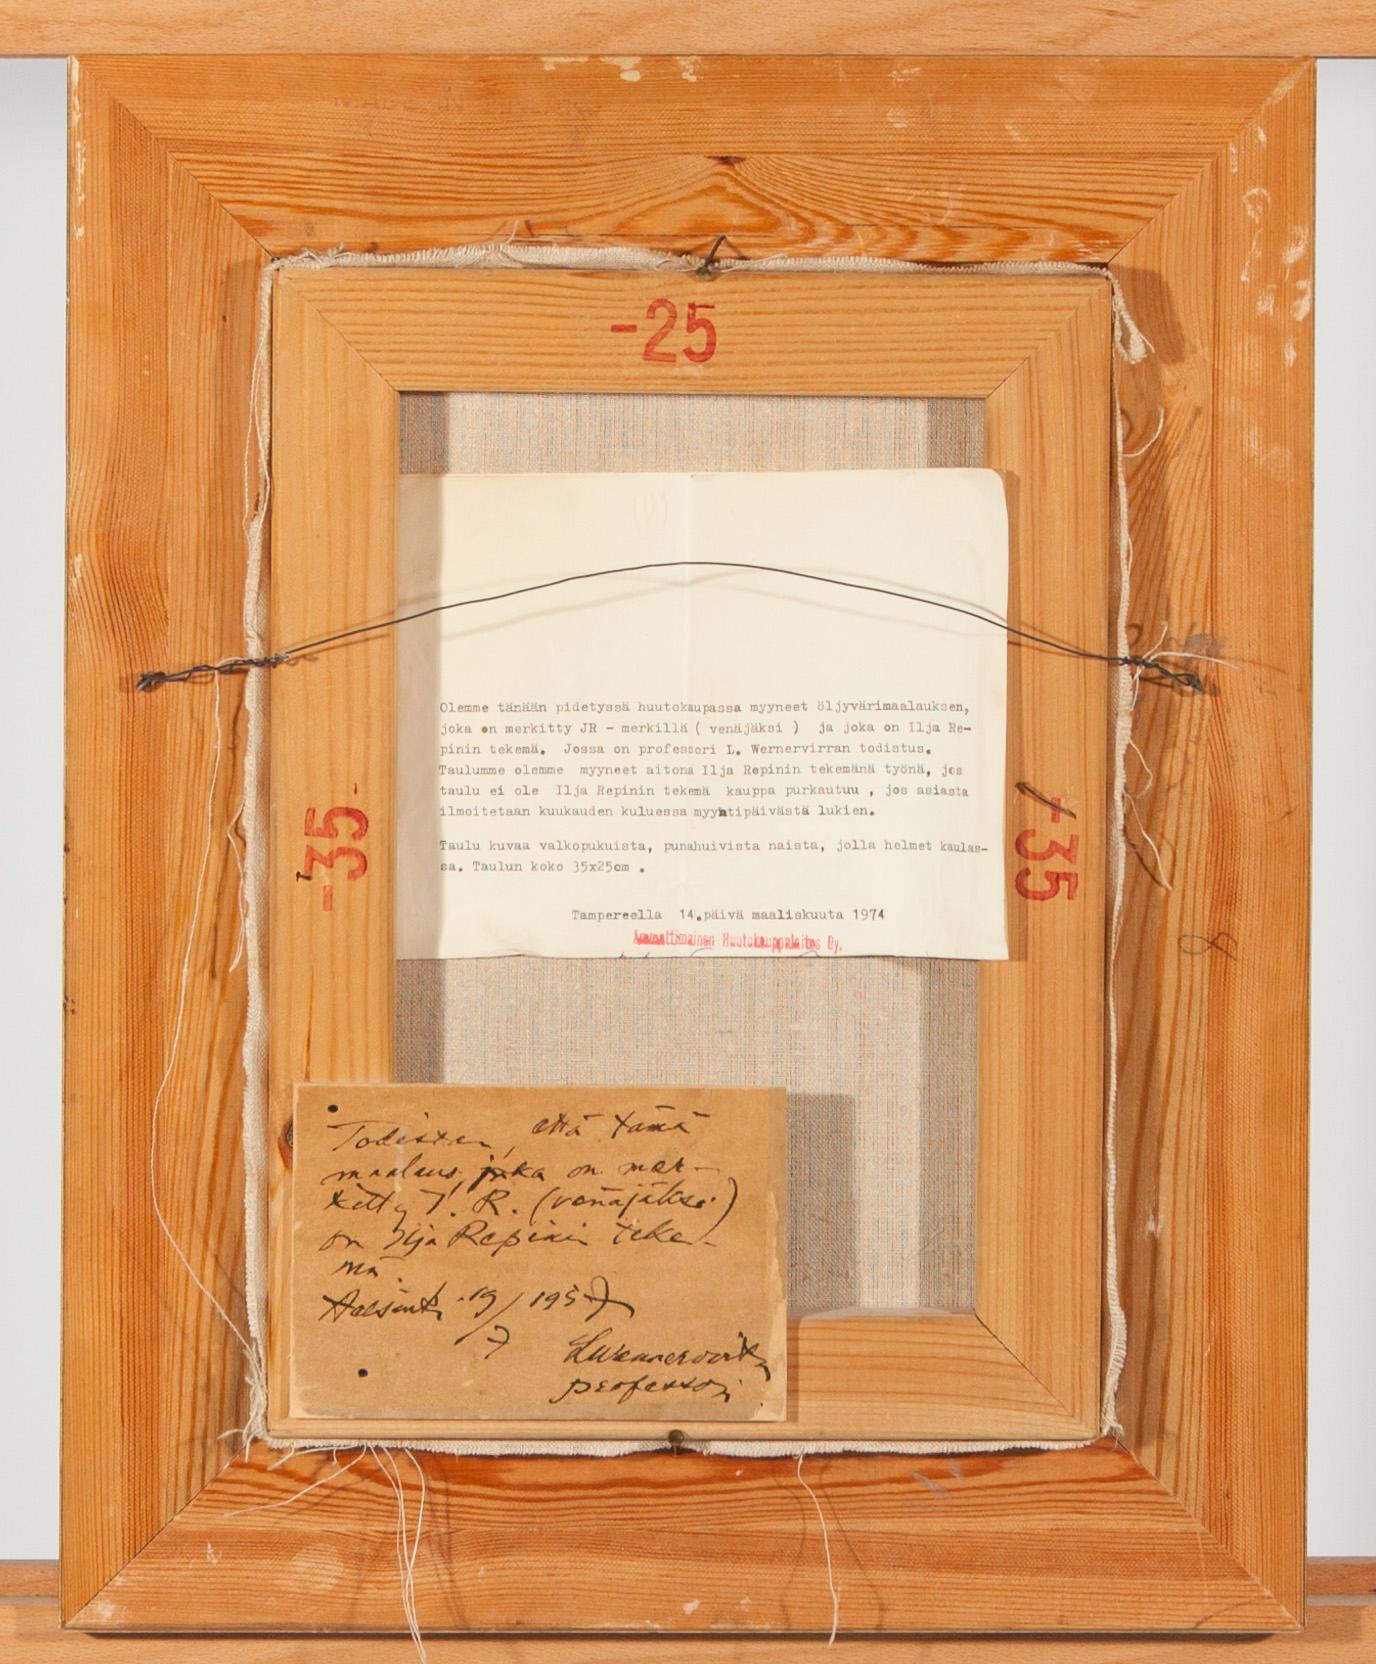 -25
Olemme tänään pidetyssä huutokaupassa myyneet öljyvärimaalauksen,
joka on merkitty JR - merkillä ( venäjäksi ) ja joka on Ilja Re-
pinin tekemä. Jossa on professori L. Wernervirran todistus.
Taulumme olemme myyneet aitona Ilja Repinin tekemänä työnä, jos
taulu ei ole Ilja Repinin tekemä kauppa purkautuu , jos asiasta
ilmoitetaan kuukauden kuluessa myyntipäivästä lukien.
Taulu kuvaa valkopukuista, punahuivista naista, jolla helmet kaulas-
sa. Taulun koko 35x25cm .
Tampereella 14.päivä maaliskuuta 1974
Ammattimainen Huutokauppalaitos Oy.
-35
+35
8
Todistan, että tämä
maalaus, joka on mer-
kitty I. R. (venäjäksi)
on Ilja Repinin teke-
mä.
Helsinki 19/7 1957
L Wennervirta
professori